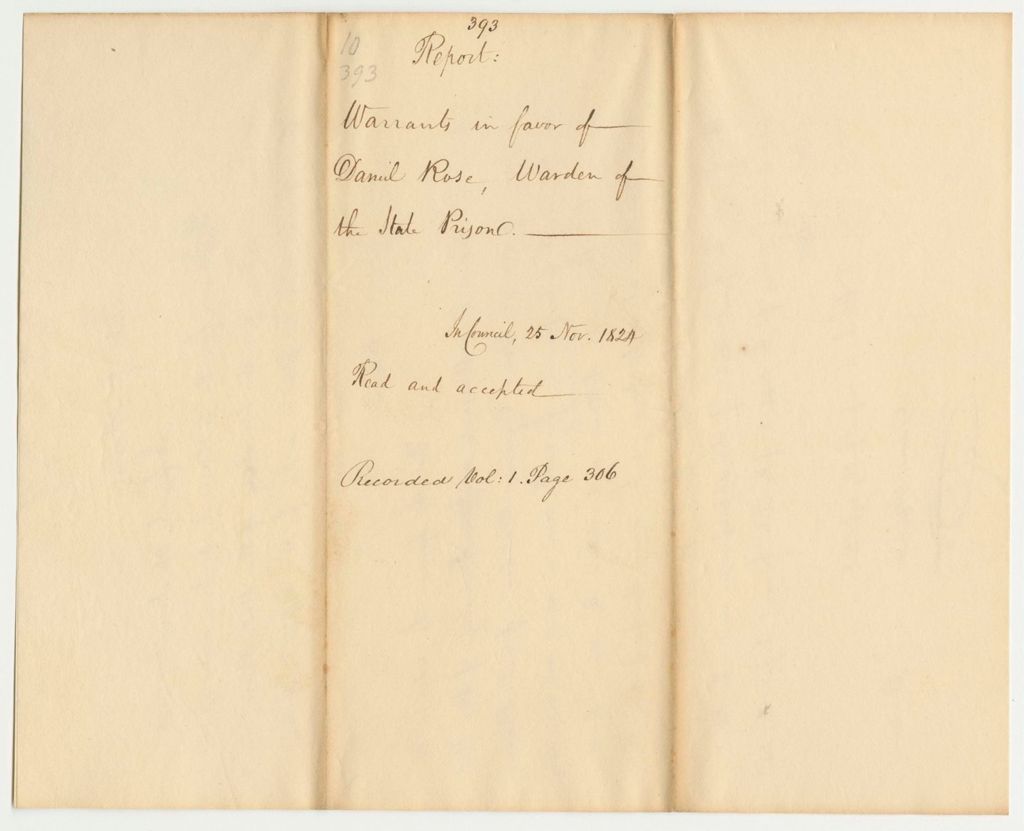 393
10
393
Report:
Warrants in favor of
Daniel Rose, Warden of
the State Prison.
In Council, 25 Nov. 1824
Read and accepted
Recorded Vol: 1. Page 306